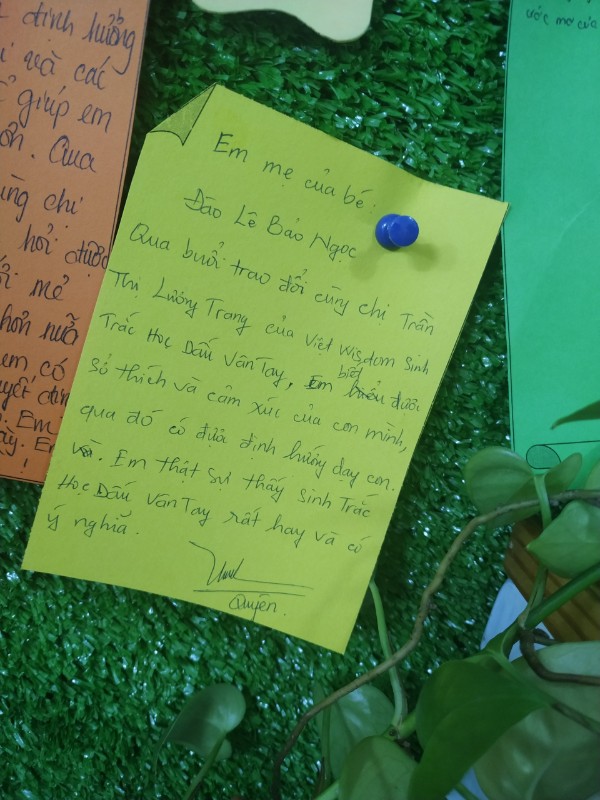 định hướng
và các
giúp em
Qua
chị
hỏi được
mẻ
hơn nữa
em có
Em
Em
!
Em mẹ của bé:
Đào Lê Bảo Ngọc
Qua buổi trao đổi cùng chị Trần
Thị Lương Trang của Việt Wisdom Sinh
Trắc Học Dấu Vân Tay, Em biết được
sở thích và cảm xúc của con mình,
qua đó có đưa định hướng dạy con.
Em thật sự thấy Sinh Trắc
Học Dấu Vân Tay rất hay và có
ý nghĩa.
Quyên.
ước mơ của